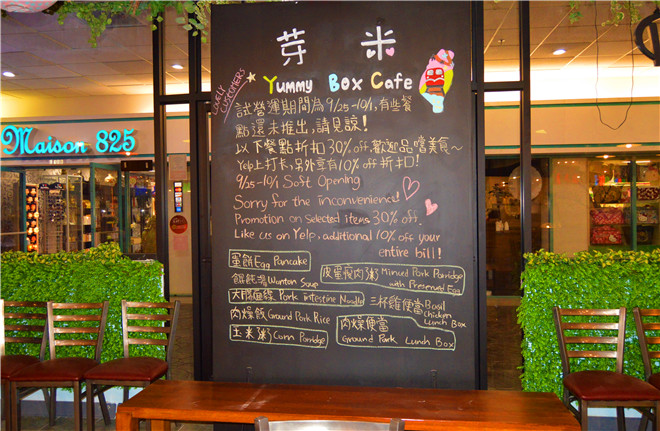 芽米
Yummy Box Cafe
LOVELY CUSTOMERS
Maison 825
試營運期間為9/25-10/1,有些餐
點還未推出,請見諒!
以下餐點折扣30% off 歡迎品嚐美食~
Yelp上打卡,另外享有10% off 折扣!
9/25-10/1 Soft Opening
Sorry for the inconvenience!
Promotion on selected items 30% off
Like us on Yelp, additional 10% off your
entire bill!
蛋餅 Egg Pancake
餛飩湯 Wonton Soup
大腸麵線 Pork intestine Noodle
肉燥飯 Ground Pork Rice
玉米粥 Corn Porridge
皮蛋瘦肉粥 Minced Pork Porridge
with Preserved Egg
三杯雞便當 Basil
Chicken
Lunch Box
肉燥便當
Ground Pork Lunch Box